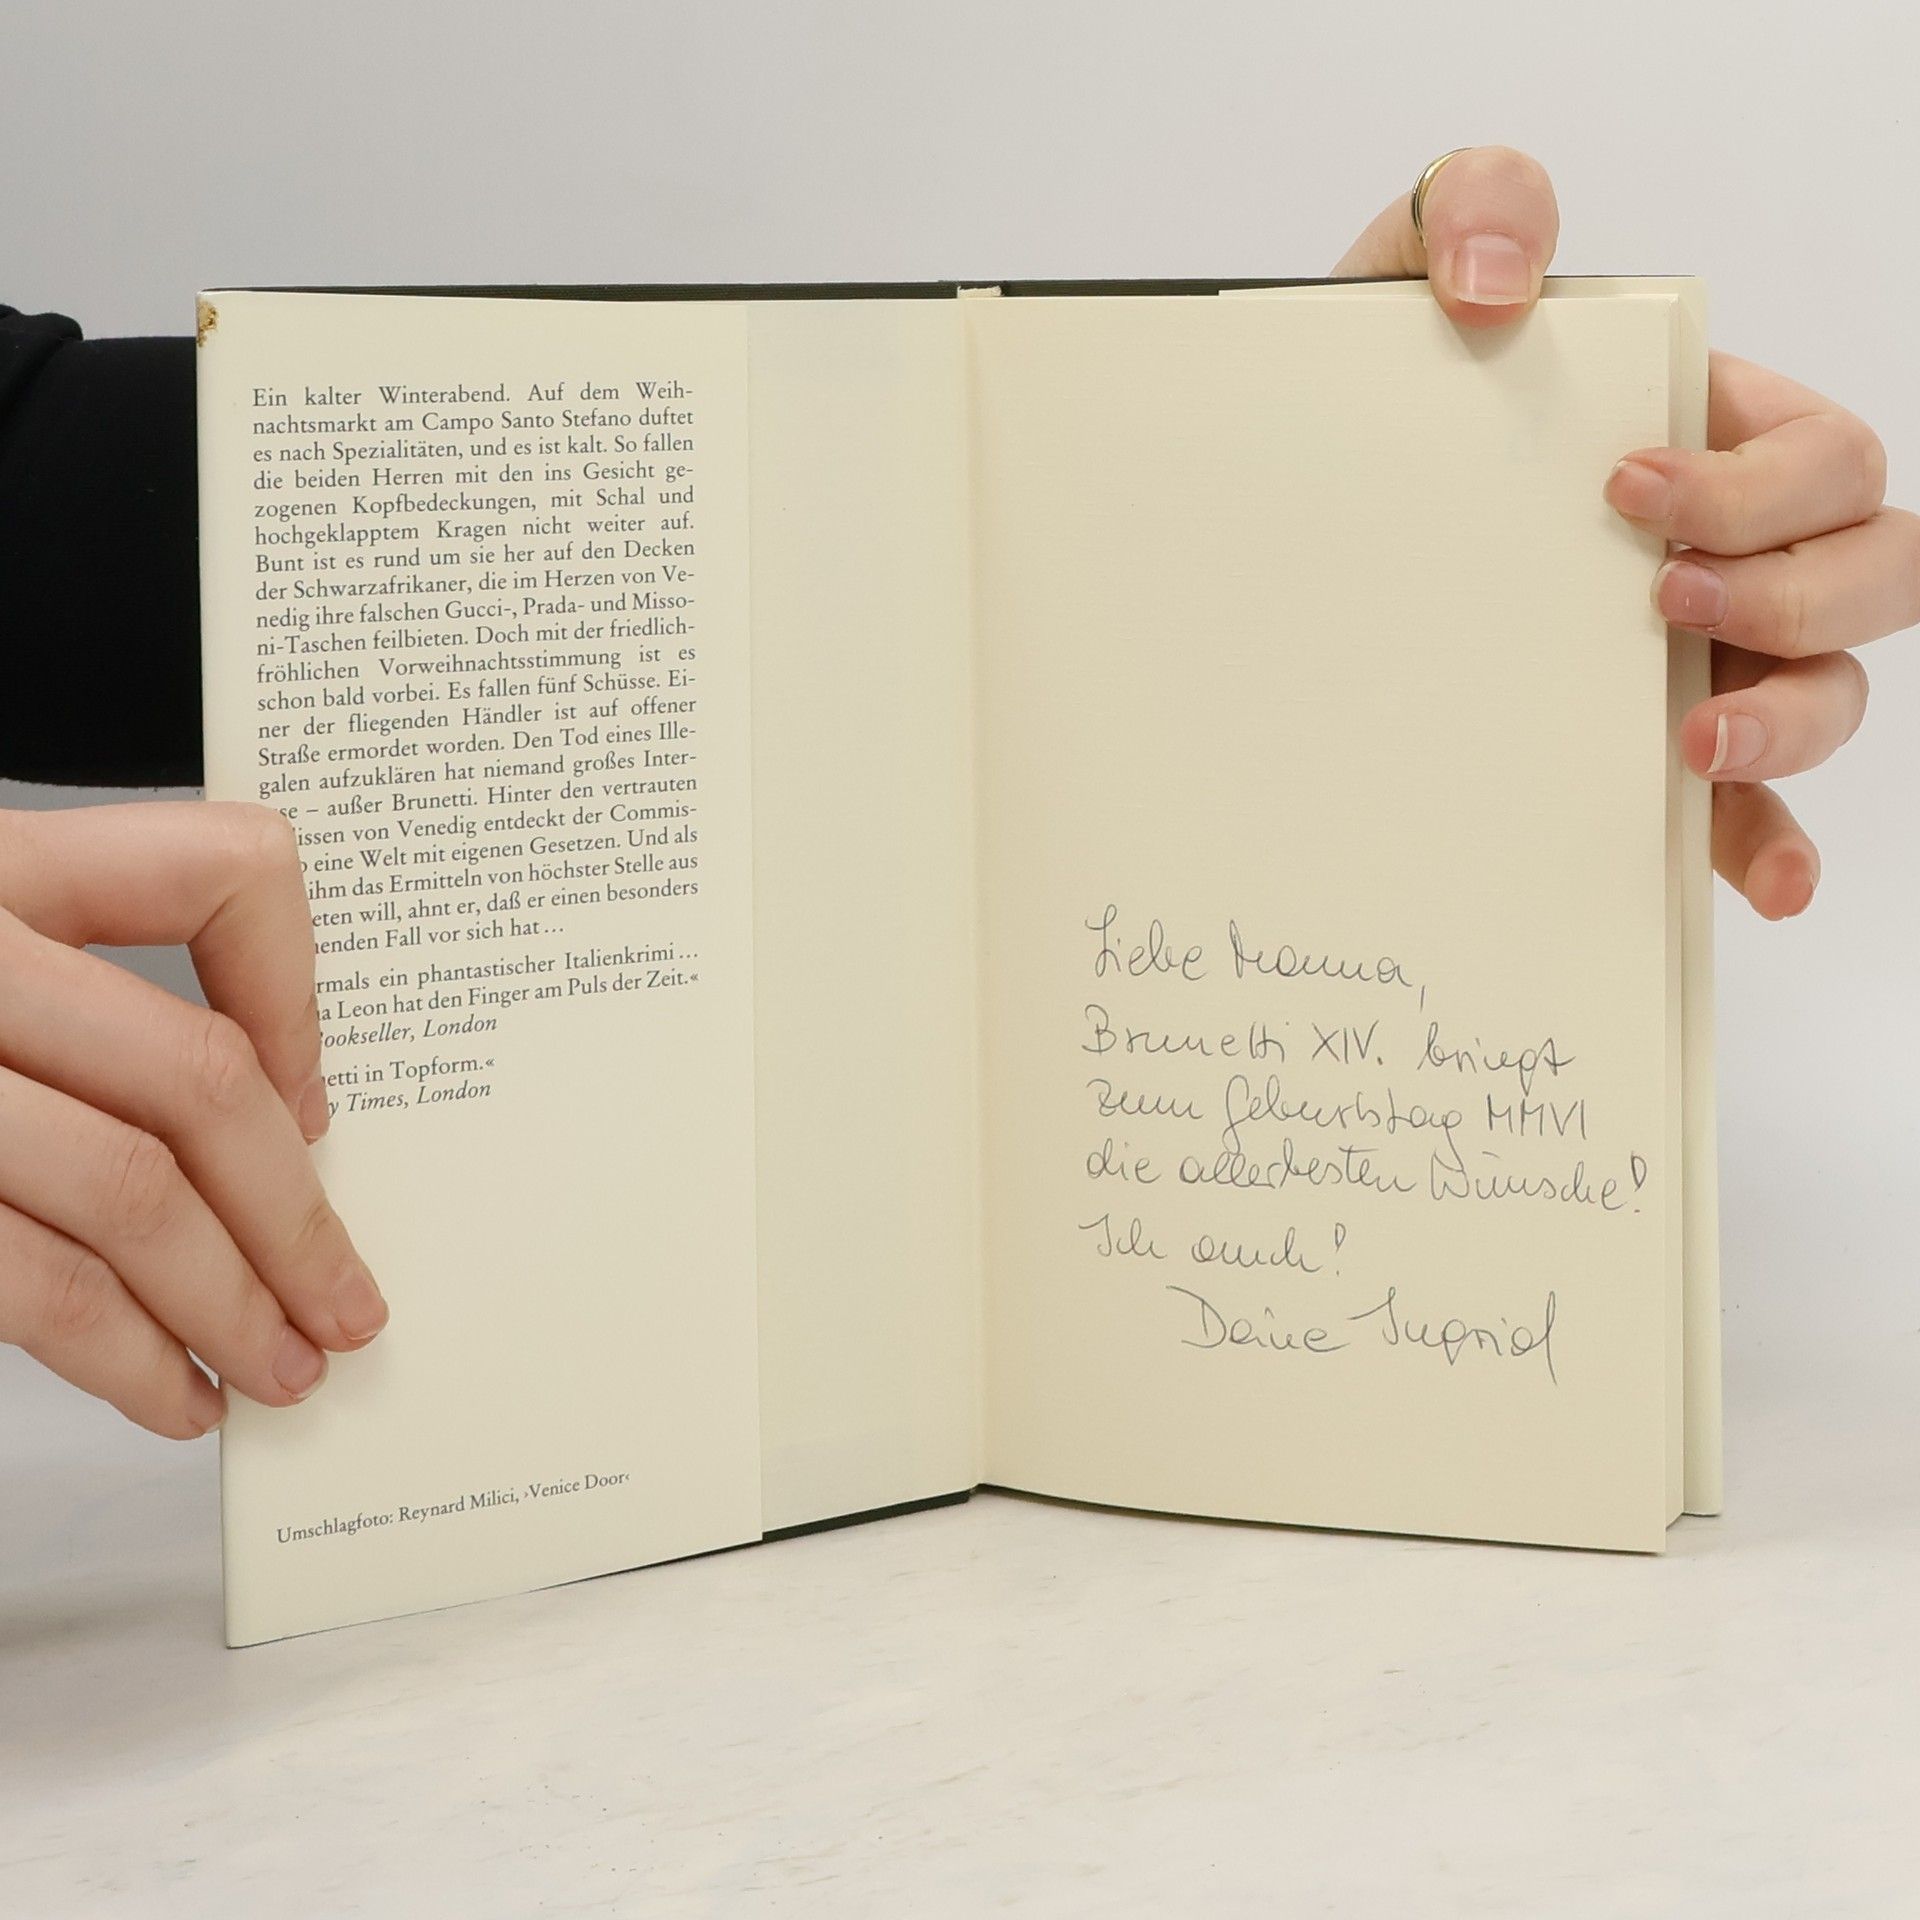 Ein kalter Winterabend. Auf dem Weih-
nachtsmarkt am Campo Santo Stefano duftet
es nach Spezialitäten, und es ist kalt. So fallen
die beiden Herren mit den ins Gesicht ge-
zogenen Kopfbedeckungen, mit Schal und
hochgeklapptem Kragen nicht weiter auf.
Bunt ist es rund um sie her auf den Decken
der Schwarzafrikaner, die im Herzen von Ve-
nedig ihre falschen Gucci-, Prada- und Misso-
ni-Taschen feilbieten. Doch mit der friedlich-
fröhlichen Vorweihnachtsstimmung ist es
schon bald vorbei. Es fallen fünf Schüsse. Ei-
ner der fliegenden Händler ist auf offener
Straße ermordet worden. Den Tod eines Ille-
galen aufzuklären hat niemand großes Inter-
se – außer Brunetti. Hinter den vertrauten
lissen von Venedig entdeckt der Commis-
o eine Welt mit eigenen Gesetzen. Und als
ihm das Ermitteln von höchster Stelle aus
eten will, ahnt er, daß er einen besonders
enden Fall vor sich hat ...
rmals ein phantastischer Italienkrimi ...
a Leon hat den Finger am Puls der Zeit.«
ookseller, London
etti in Topform.«
y Times, London
Umschlagfoto: Reynard Milici, ›Venice Door‹
Liebe Mama,
Brunetti XIV. bringt
zum Geburtstag MMVI
die allerbesten Wünsche!
Ich auch!
Deine Ingrid